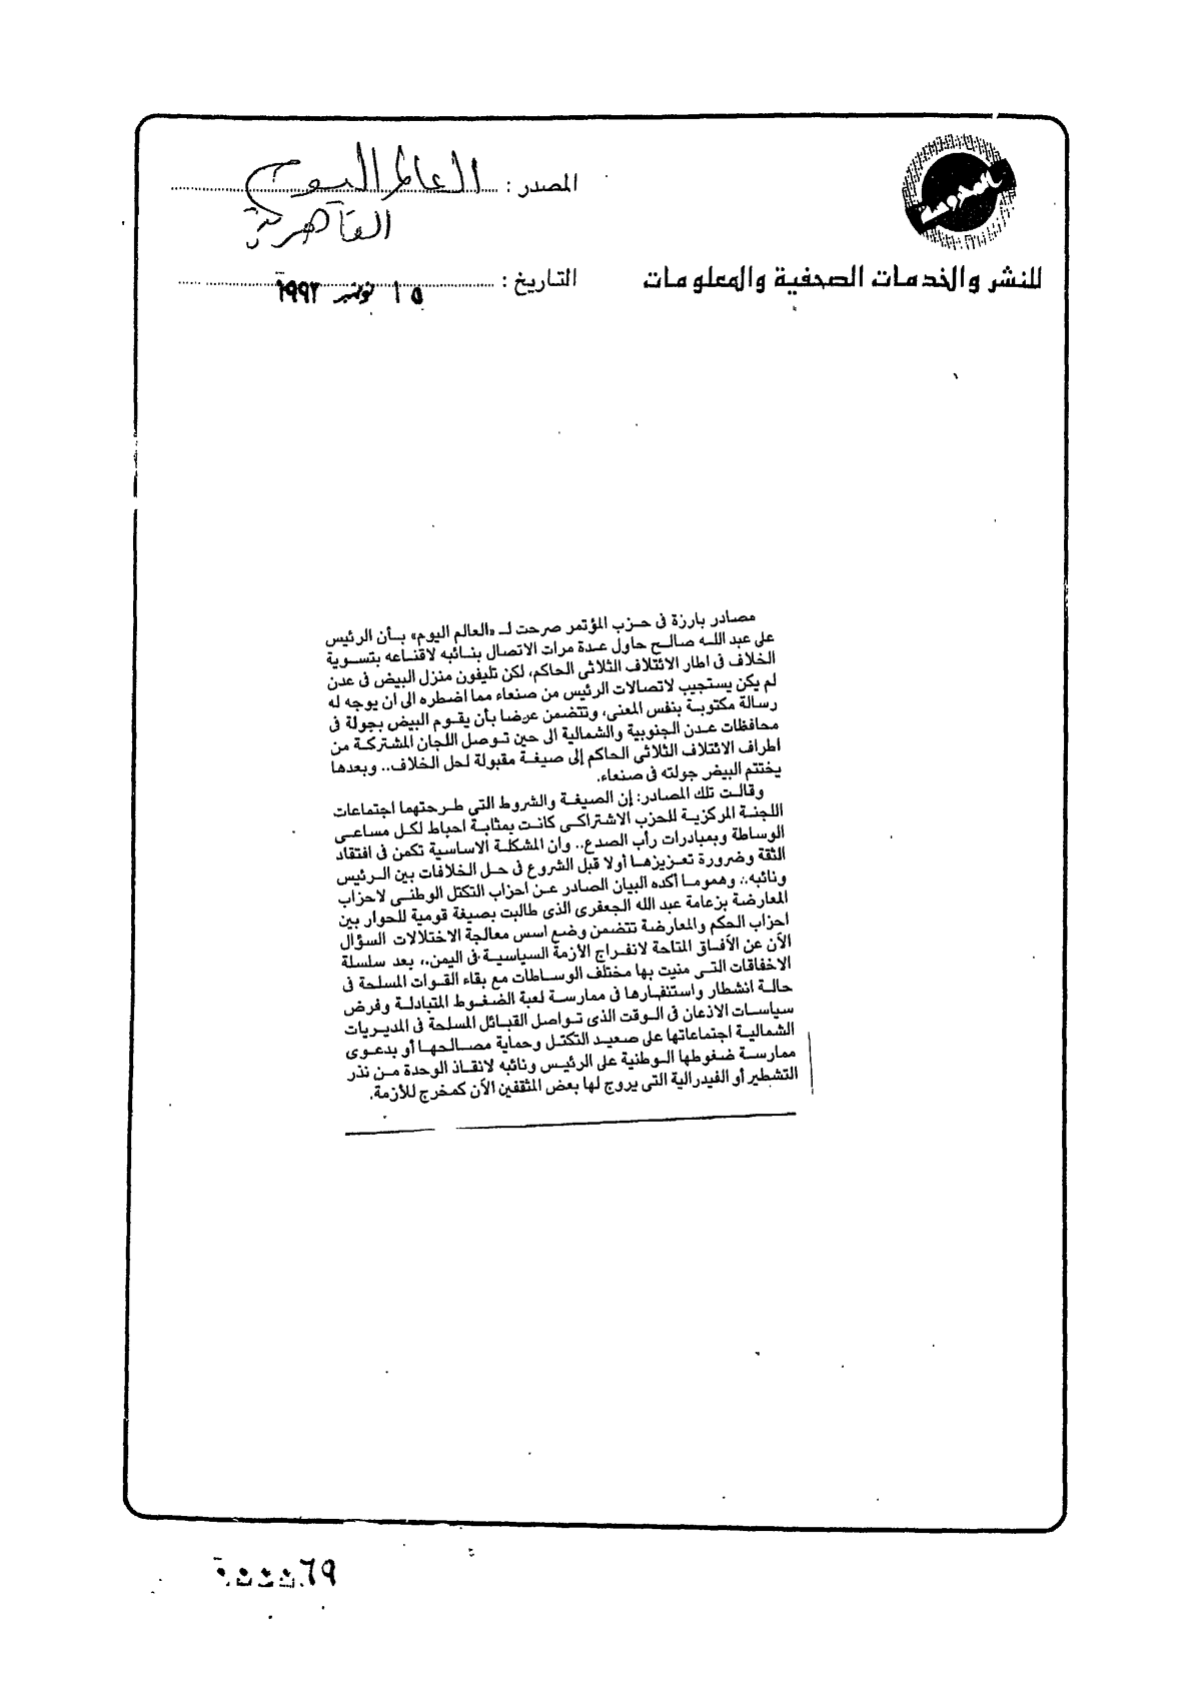 المحروسة
للنشر والخدمات الصحفية والمعلومات
المصدر : العالم اليوم
القاهرية
التاريخ : ١٥ نوفمبر ١٩٩٣
مصادر بارزة فى حزب المؤتمر صرحت لـ «العالم اليوم» بأن الرئيس
على عبد الله صالح حاول عدة مرات الاتصال بنائبه لاقناعه بتسوية
الخلاف فى اطار الائتلاف الثلاثى الحاكم، لكن تليفون منزل البيض فى عدن
لم يكن يستجيب لاتصالات الرئيس من صنعاء مما اضطره الى ان يوجه له
رسالة مكتوبة بنفس المعنى، وتتضمن عرضا بأن يقوم البيض بجولة فى
محافظات عدن الجنوبية والشمالية الى حين توصل اللجان المشتركة من
اطراف الائتلاف الثلاثى الحاكم إلى صيغة مقبولة لحل الخلاف.. وبعدها
يختتم البيض جولته فى صنعاء.
وقالت تلك المصادر: إن الصيغة والشروط التى طرحتهما اجتماعات
اللجنة المركزية للحزب الاشتراكى كانت بمثابة احباط لكل مساعى
الوساطة وبمبادرات رأب الصدع.. وان المشكلة الاساسية تكمن فى افتقاد
الثقة وضرورة تعزيزها أولا قبل الشروع فى حل الخلافات بين الرئيس
ونائبه.. وهو ما أكده البيان الصادر عن احزاب التكتل الوطنى لاحزاب
المعارضة بزعامة عبد الله الجعفرى الذى طالبت بصيغة قومية للحوار بين
احزاب الحكم والمعارضة تتضمن وضع اسس معالجة الاختلالات السؤال
الآن عن الآفاق المتاحة لانفراج الأزمة السياسية فى اليمن.، بعد سلسلة
الاخفاقات التى منيت بها مختلف الوساطات مع بقاء القوات المسلحة فى
حالة انشطار واستنفارها فى ممارسة لعبة الضغوط المتبادلة وفرض
سياسات الاذعان فى الوقت الذى تواصل القبائل المسلحة فى المديريات
الشمالية اجتماعاتها على صعيد التكتل وحماية مصالحها أو بدعوى
ممارسة ضغوطها الوطنية على الرئيس ونائبه لانقاذ الوحدة من نذر
التشطير أو الفيدرالية التى يروج لها بعض المثقفين الآن كمخرج للأزمة.